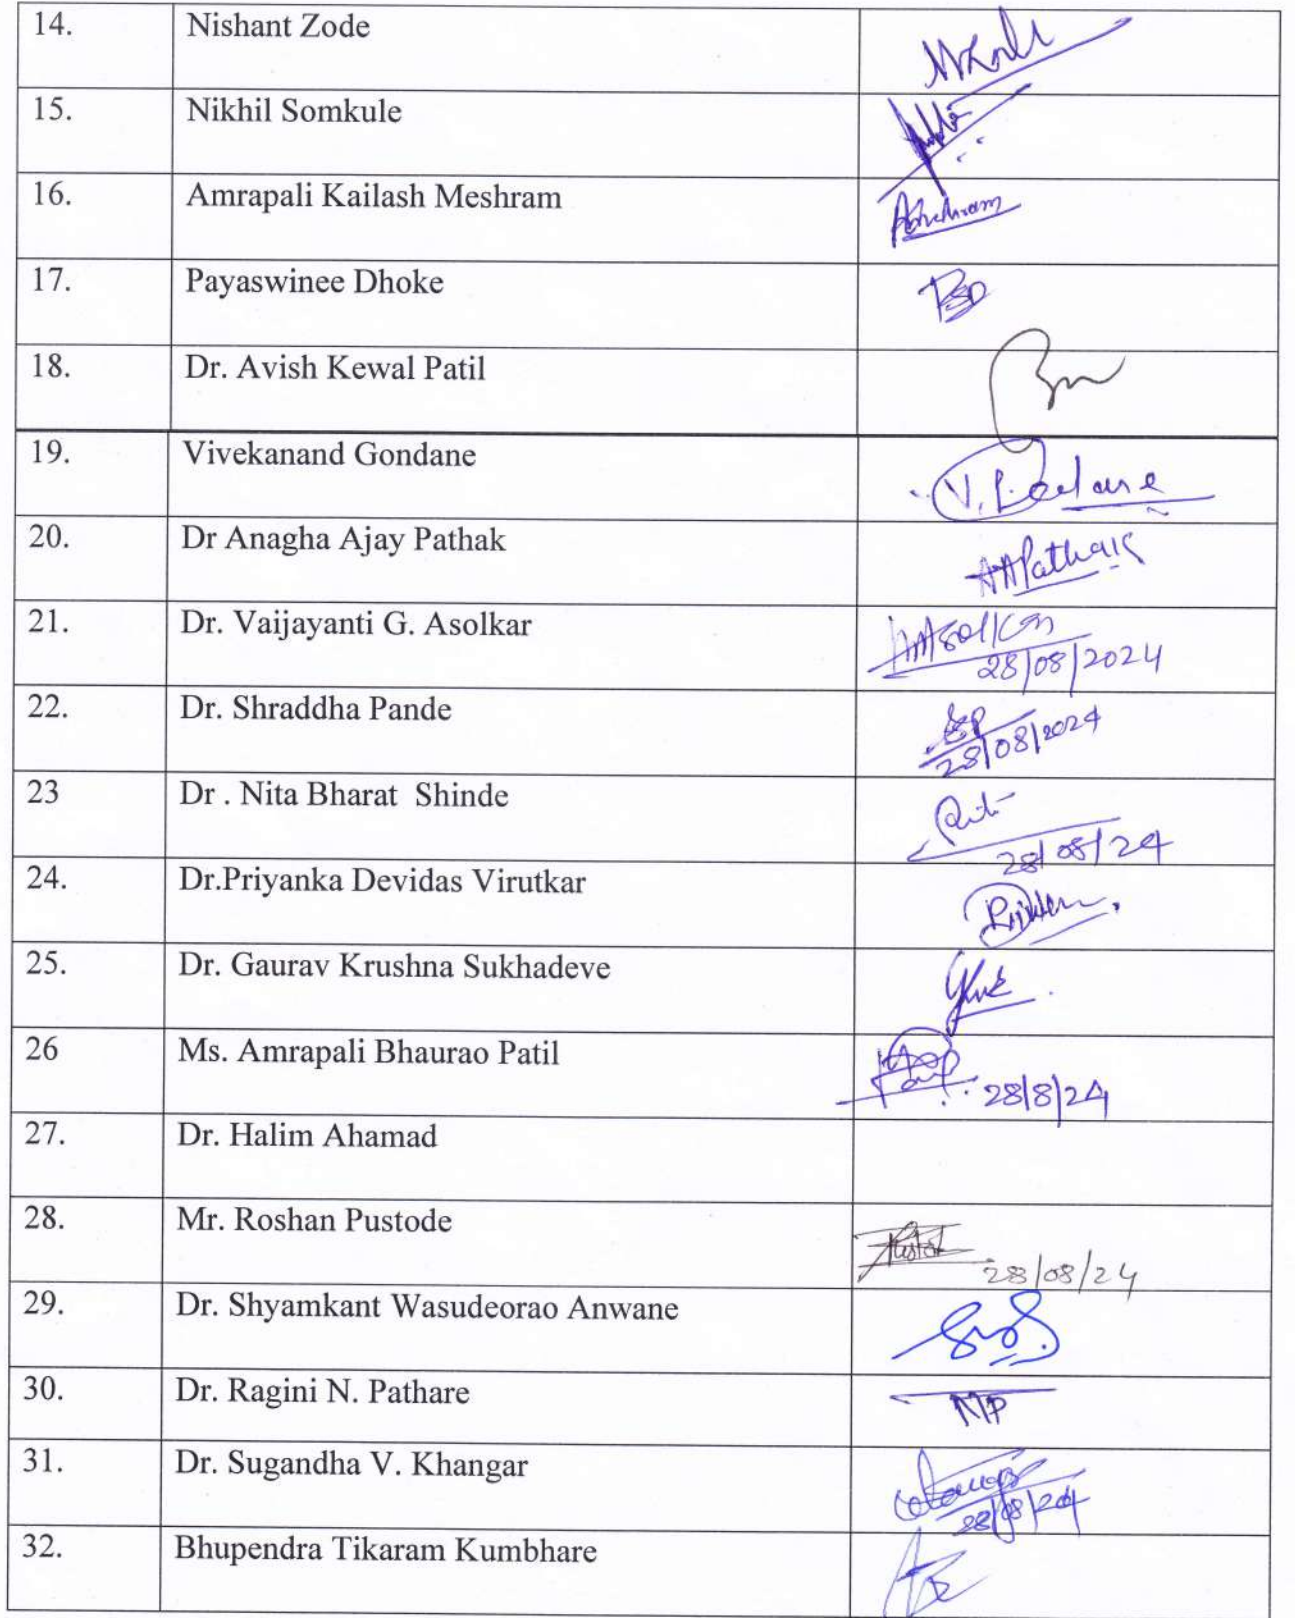 14. Nishant Zode
15. Nikhil Somkule
16. Amrapali Kailash Meshram
17. Payaswinee Dhoke
18. Dr. Avish Kewal Patil
19. Vivekanand Gondane
20. Dr Anagha Ajay Pathak AAPathak
21. Dr. Vaijayanti G. Asolkar
28/08/2024
22. Dr. Shraddha Pande
28/08/2024
23 Dr . Nita Bharat  Shinde
28/08/24
24. Dr.Priyanka Devidas Virutkar
25. Dr. Gaurav Krushna Sukhadeve
26 Ms. Amrapali Bhaurao Patil
28/8/24
27. Dr. Halim Ahamad
28. Mr. Roshan Pustode
28/08/24
29. Dr. Shyamkant Wasudeorao Anwane
30. Dr. Ragini N. Pathare
31. Dr. Sugandha V. Khangar
28/08/24
32. Bhupendra Tikaram Kumbhare